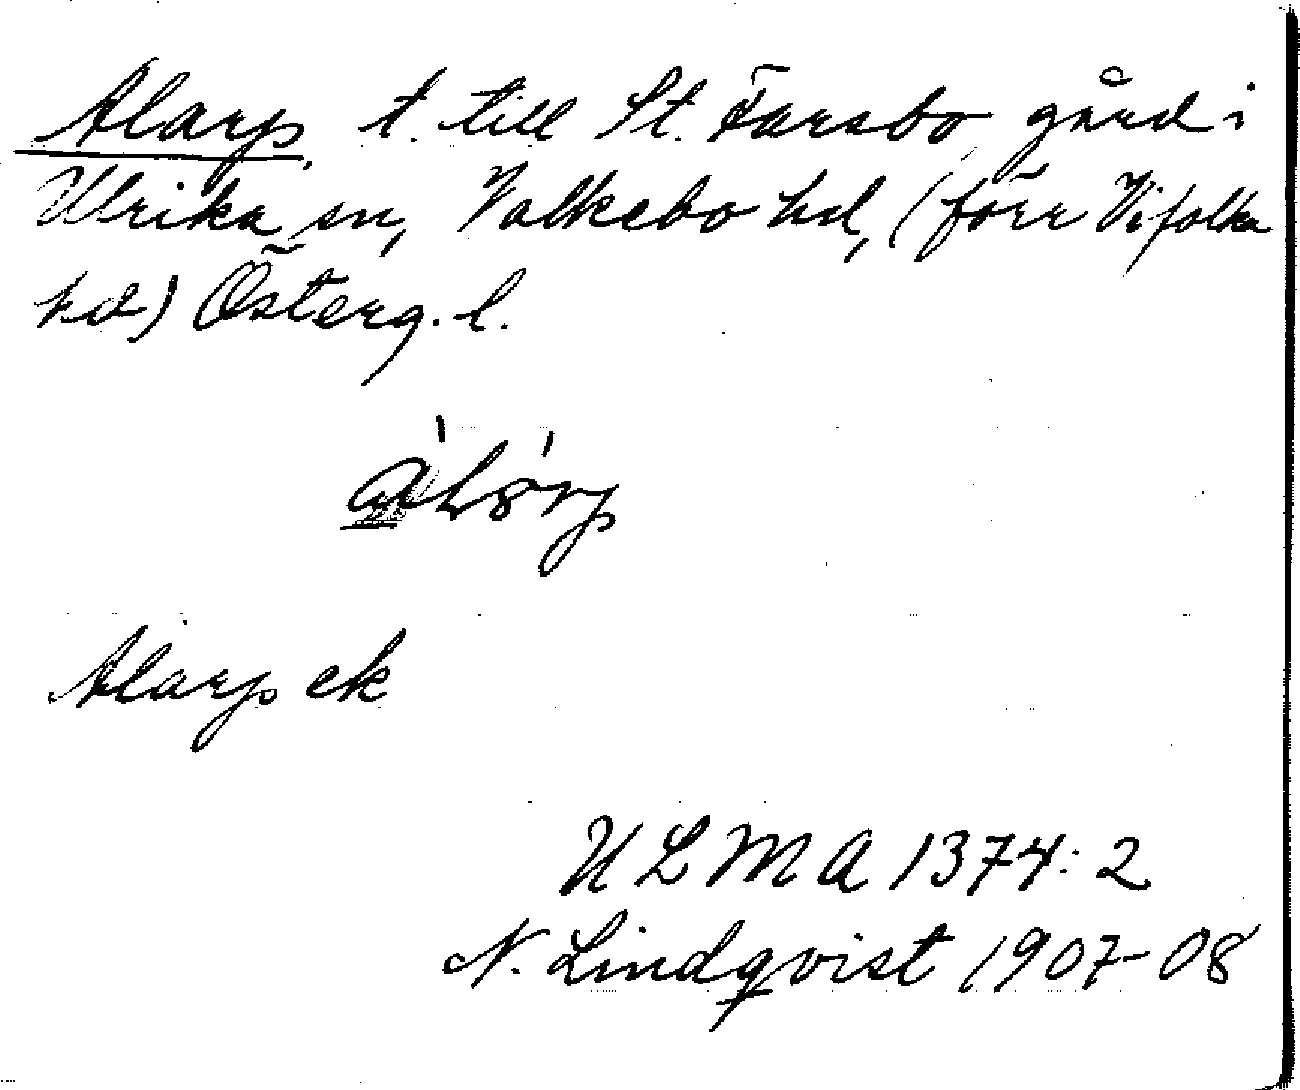 Alarp, t. till St. Farsbo gård i
Ulrika sn, Valkebo hd, (förr Vifolka
hd) Österg. l.
Alarp ek
ULMA 1374:2
N. Lindqvist 1907-08